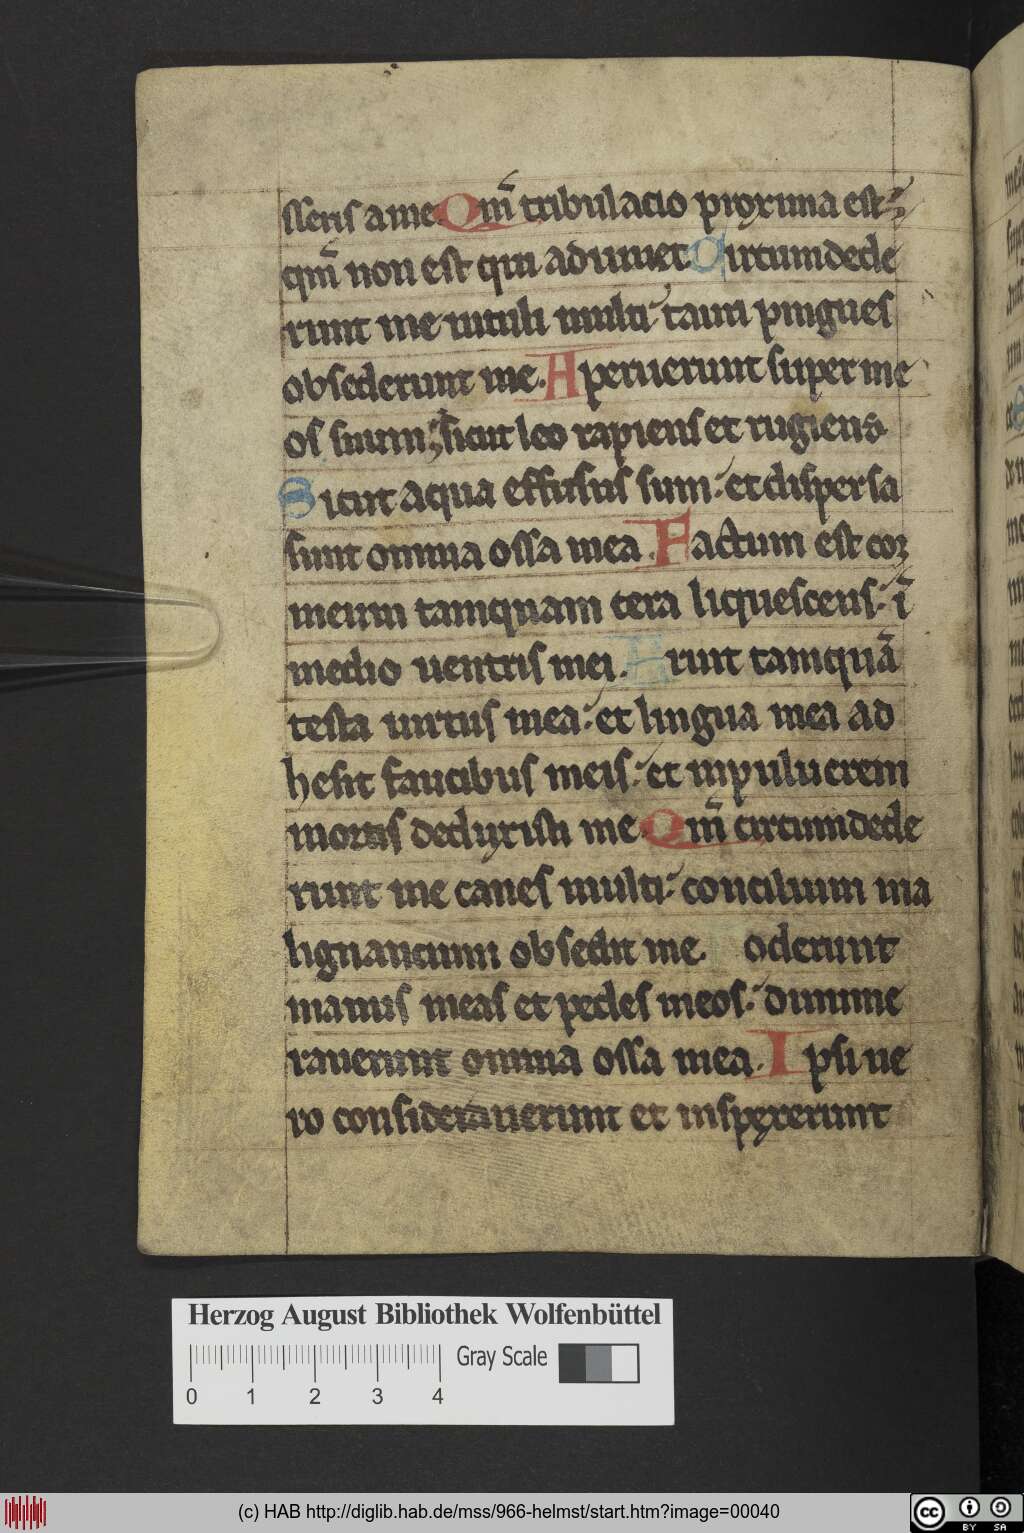 sseris a me. Qm̄ tribulacio proxima est
qm̄ non est qui adiuuet. Circumdede
runt me uituli multi: tauri pingues
obsederunt me. Aperuerunt super me
os suum: sicut leo rapiens et rugiens.
Sicut aqua effusus sum: et dispersa
sunt omnia ossa mea. Factum est cor
meum tamquam cera liquescens: ī
medio uentris mei. Erunt tamquā
testa uirtus mea: et lingua mea ad
hesit faucibus meis: et inpuluerem
mortis deduxisti me. Qm̄ circumdede
runt me canes multi: concilium ma
lignancium obsedit me. Foderunt
manus meas et pedes meos: dinume
rauerunt omnia ossa mea. Ipsi ue
ro considerauerunt et inspexerunt
Herzog August Bibliothek Wolfenbüttel
Gray Scale
0 1 2 3 4
(c) HAB http://diglib.hab.de/mss/966-helmst/start.htm?image=00040
cc BY SA